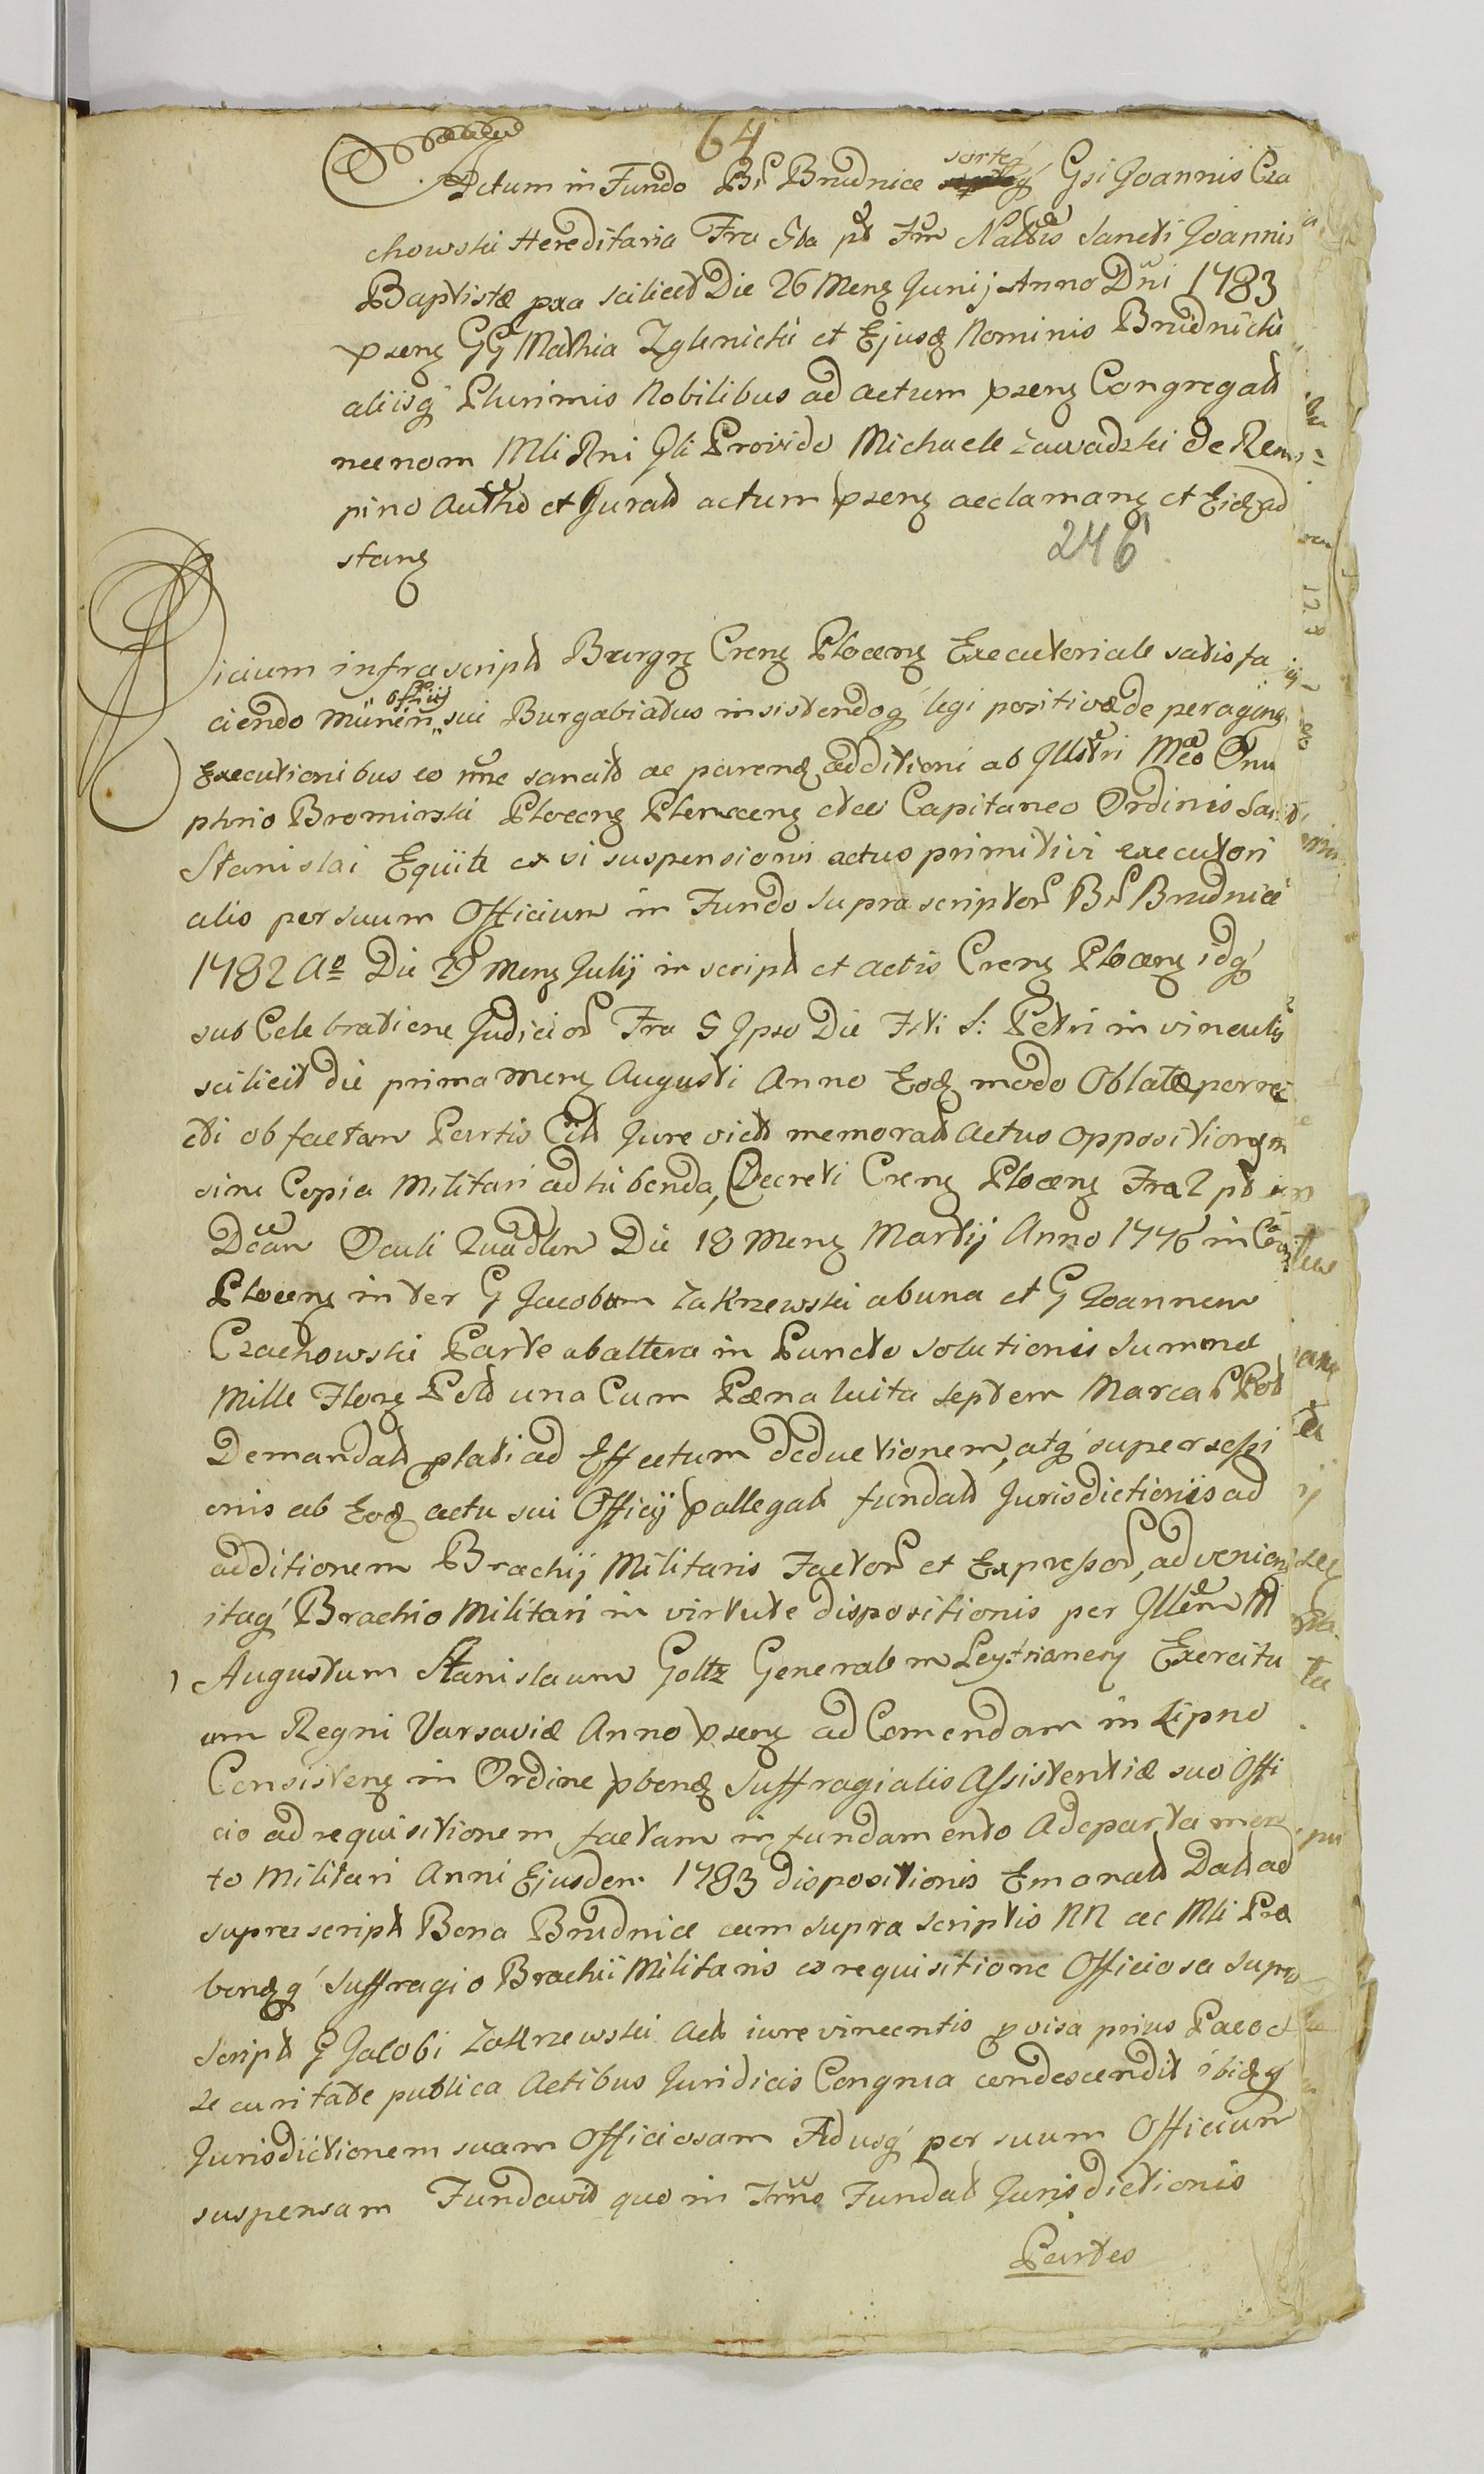 64
Actum in Fundo Br Brudnice sorteq́ Gsi Joannis Cza
chowski Hereditaria Fra 5ta pt Ftm Nattis Sancti Joannis
Baptistæ pxa scilicet Die 26 Mens Junij Anno Dni 1783
psens GG Mathia Zglenicki et Ejusd Nominis Brudnicki
aliisq́ Plurimis Nobilibus ad actum psens Congregatt
necnom Mli Rni Gli Provido Michaele Zawadzki de Rem
pino Autht et Juratt actum psens acclamans et Eid ad
stans
246
Officium infrascriptt Burgrs Crens Plocens Executoriale satisfa
ciendo munem offcij sui Burgabiatus insistendoq́ legi positivæ de peragens
Executionibus eo nne sancitt ac parend additioni ab Illstri Mco Onu
phrio Bromirski Plocens Plenscens etce Capitaneo Ordinis Sati
Stanislai Equitte ex vi suspensionis actus primitivi executori
alis per suum Officium in Fundo supra scriptor Br Brudnice
1782 Ao Die 29 Mens Julij in scriptt et actis Crens Plocens idq́
sub Celebratione Judicior Fra 5 Ipso Die Fsti S: Petri in vinculis
scilicit die prima mens Augusti Anno Eod modo Oblatæ porre
cti ob factam Partis Citt Jure victt memoratt Actus oppositionem
sine Copia Militari adhibenda, Decreti Crens Plocens Fra 2 pt
Dcam Oculi Quadlem Die 18 Mens Martij Anno 1776 in
Plocens inter G Jacobum Zakrzewski abuna et G Joannem
Czachowski Parte ab altera in Puncto solutionis Summæ
Mille Flors Poltt una Cum Pæna luita septem Marcar PPolt
Demandatt plati ad Effectum deductionem, atq́ superseßi
onis ab Eod actu sui Officij pallegatt fundatt Jurisdictioniis ad
additionem Brachij Militaris Factor et Expreßor, adveniens
itaq́ Brachio Militari in virtute dispositionis per Illem M
Augustum Stanislaum Goltz Generalem Leytnanery Exercitu
um Regni Varsaviæ Anno psens ad Comendam in Lipno
Consistens in Ordine pbend Suffragialis Aßistentiæ suo Offi
cio ad requisitionem factam in fundamento Adepartamen
to Militari Anni Ejusdem 1783 dispositionis Emanatt Datt ad
supra scriptt Bona Brudnice cum supra scriptis NN ac Mli Præ
bendq́ suffragio Brachii Militaris ex requisitione Officiosa supra
Scriptt G Jacobi Zakrzewski Actt iure vincentis pvisa prius Pace et
securitate publica Actibus Juridicis Congrua condescendit ibidq́
Jurisdictionem suam Officiosam Adusq́ per suum Officium
suspensam Fundavit quo in Trno Fundatt Jurisdictionis
Partes